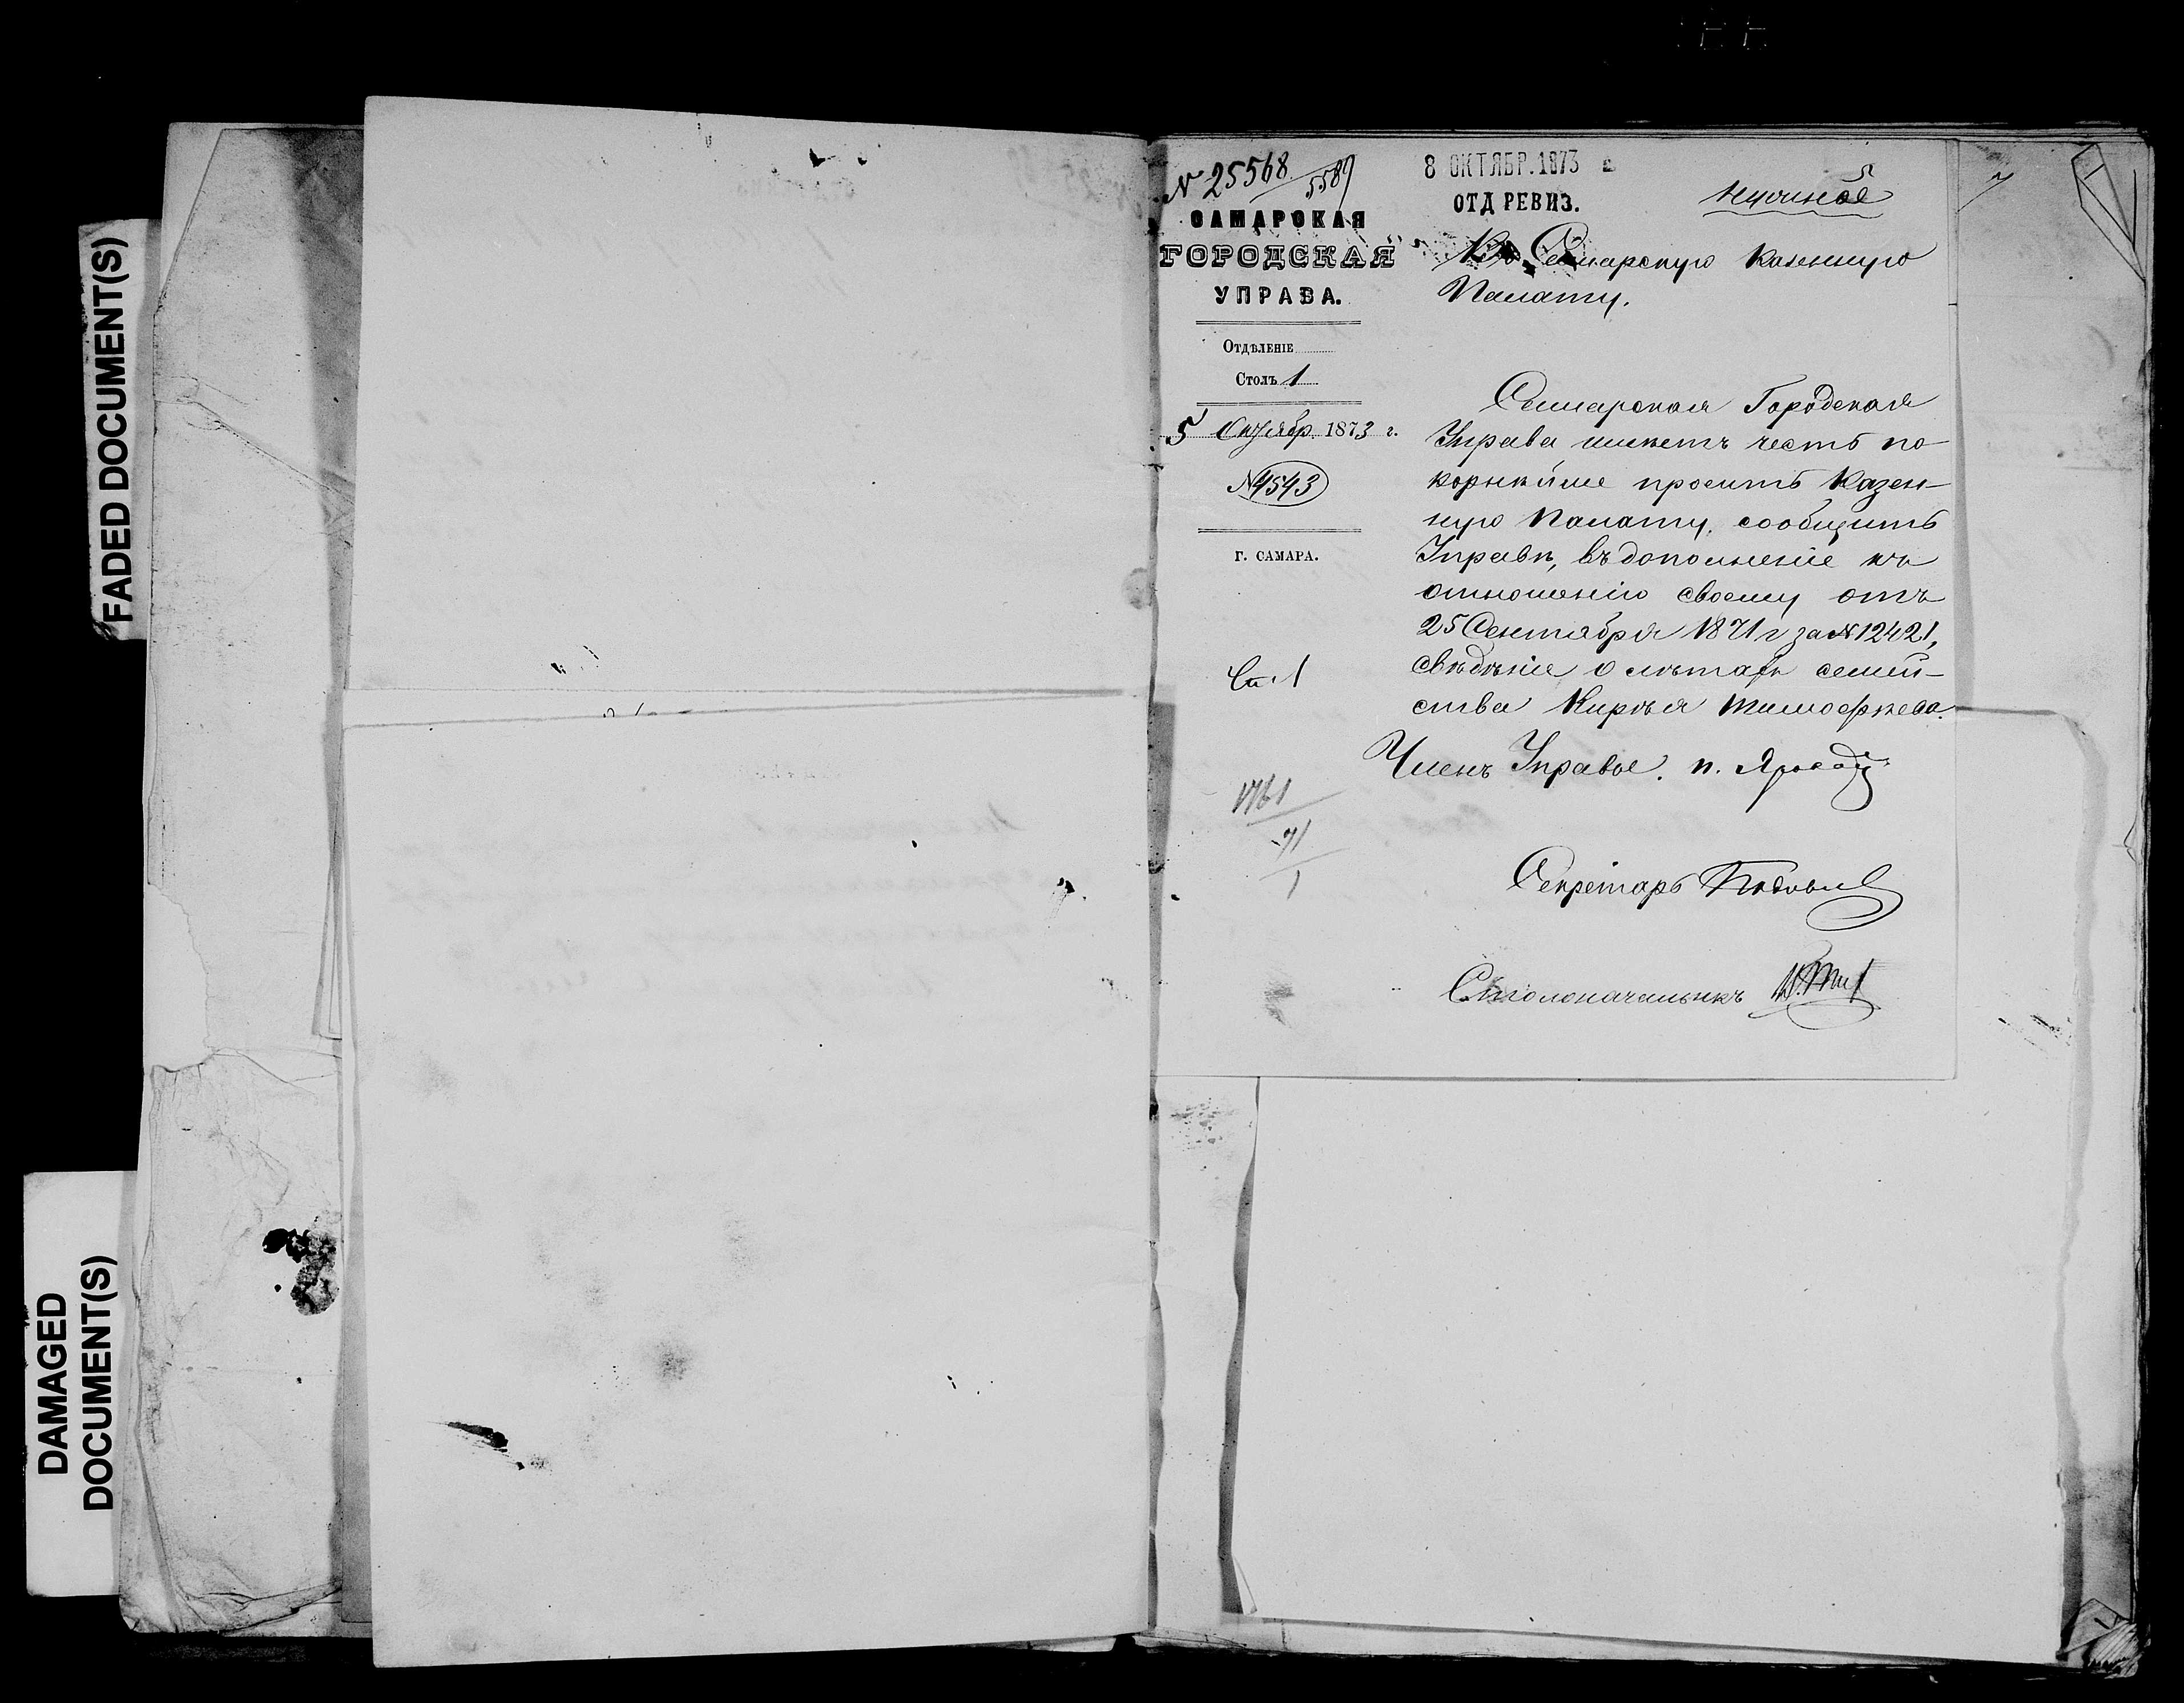 FADED DOCUMENT(S)
DAMAGED
DOCUMENT(S)
№ 25568 / 5589
САМАРСКАЯ
ГОРОДСКАЯ
УПРАВА.
Отдѣленіе
Столъ 1
5 Октябр. 1873 г.
№ 4543
Г. САМАРА.
Ст. 1
1761
71
1
8 ОКТЯБР. 1873
ОТД РЕВИЗ.
5
Въ Самарскую Казенную
Палату.
Самарская Городская
Управа имѣетъ честь по-
корнѣйше просить Казен-
ную Палату, сообщить
Управѣ, въ дополненіе къ
отношенію своему отъ
25 Сентября 1871 г за № 12421,
свѣдѣніе о лѣтахъ семей-
ства Кирѣя Тимофѣева.
Членъ Управы. п.
Секретарь
Столоначальникъ